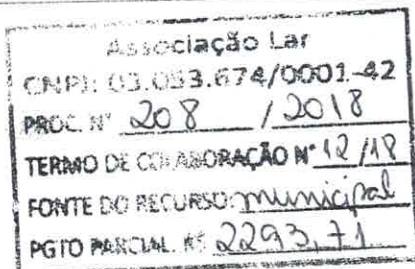 Associação Lar
CNPJ: 03.093.674/0001-42
PROC. Nº 208 / 2018
TERMO DE COLABORAÇÃO Nº 12/18
FONTE DO RECURSO: municipal
PGTO PARCIAL. R$ 2293,71